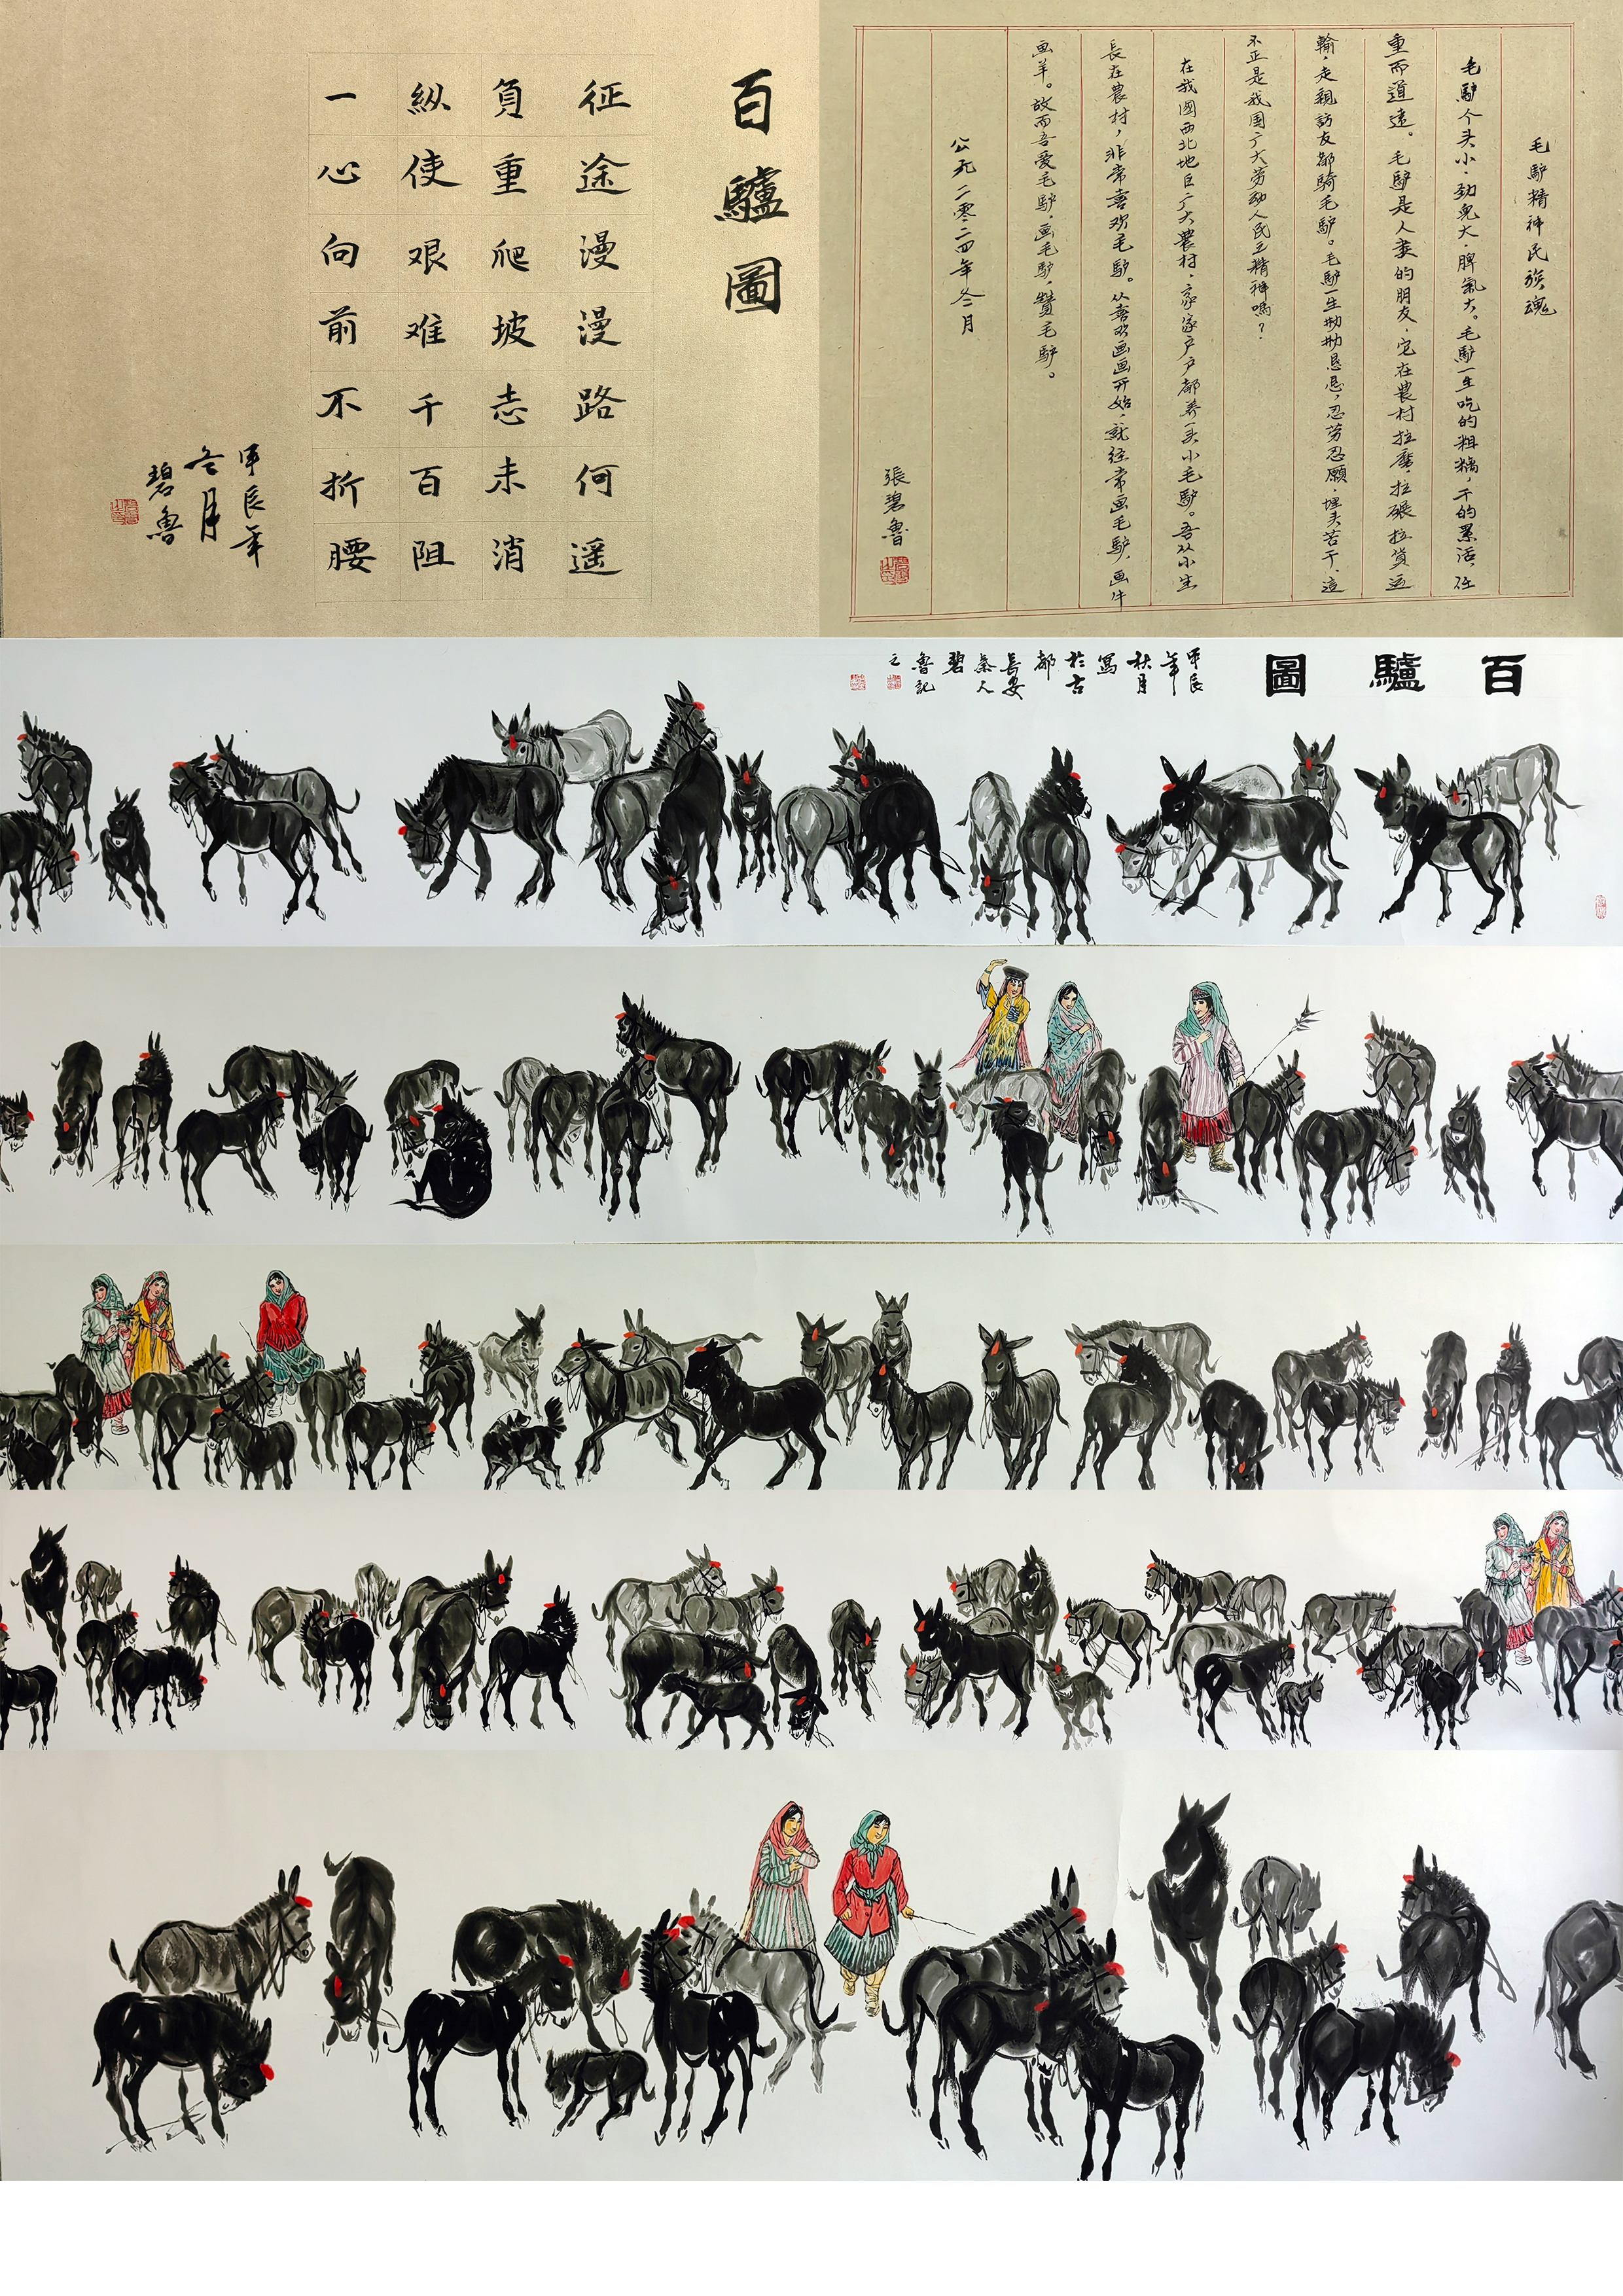 百驢圖
征途漫漫路何遥
負重爬坡志未消
縱使艰难千百阻
一心向前不折腰
甲辰年
冬月
碧魯
毛驴精神民族魂
毛驴个头小，劲儿大，脾氣大。毛驴一生吃的粗糧，干的累活，任
重而道遠。毛驴是人类的朋友，它在農村拉磨，拉碾拉貨运
輸，走親訪友都騎毛驴。毛驴一生勤勤恳恳，忍劳忍願，埋头苦干，這
不正是我国广大劳动人民之精神嗎？
在我國西北地区广大農村，家家户户都养一头小毛驴。吾从小生
長在農村，非常喜欢毛驴。从喜欢画画开始，就经常画毛驴，画牛
画羊。故而吾爱毛驴，画毛驴，贊毛驴。
公元二零二四年冬月
張碧魯
百驢圖
甲辰
年
秋月
寫
於古
都
長安
秦人
碧
魯記
之